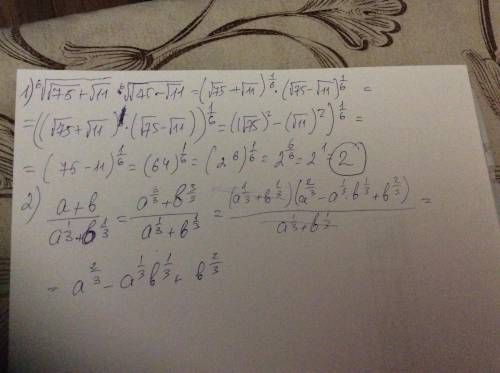 1) ⁶√(√75+√11) · ⁶√(√75-√11) = (√75+√11)^(1/6) · (√75-√11)^(1/6) =
= ((√75+√11) · (√75-√11))^(1/6) = ((√75)² - (√11)²)^(1/6) =
= (75-11)^(1/6) = (64)^(1/6) = (2⁶)^(1/6) = 2^(6/6) = 2¹ = 2
2) (a+b)/(a^(1/3)+b^(1/3)) = (a^(3/3)+b^(3/3))/(a^(1/3)+b^(1/3)) = (a^(1/3)+b^(1/3))(a^(2/3)-a^(1/3)·b^(1/3)+b^(2/3))/(a^(1/3)+b^(1/3)) =
= a^(2/3) - a^(1/3)b^(1/3) + b^(2/3)